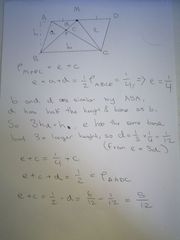 A M D
B C
P_MABC = e+c
e = a+d = 1/2 P_ABCD = 1/4, => e = 1/4
b and d are similar by ASA,
d has half the height & base as b.
So 2h_d = h_b. e has the same base
but 3x larger height, so d = 1/3 · 1/4 = 1/12
(from e = 3d)
e + c = 1/4 + c
e + c + d = 1/2 = P_AADC
e + c = 1/2 - d = 6/12 - 1/12 = 5/12